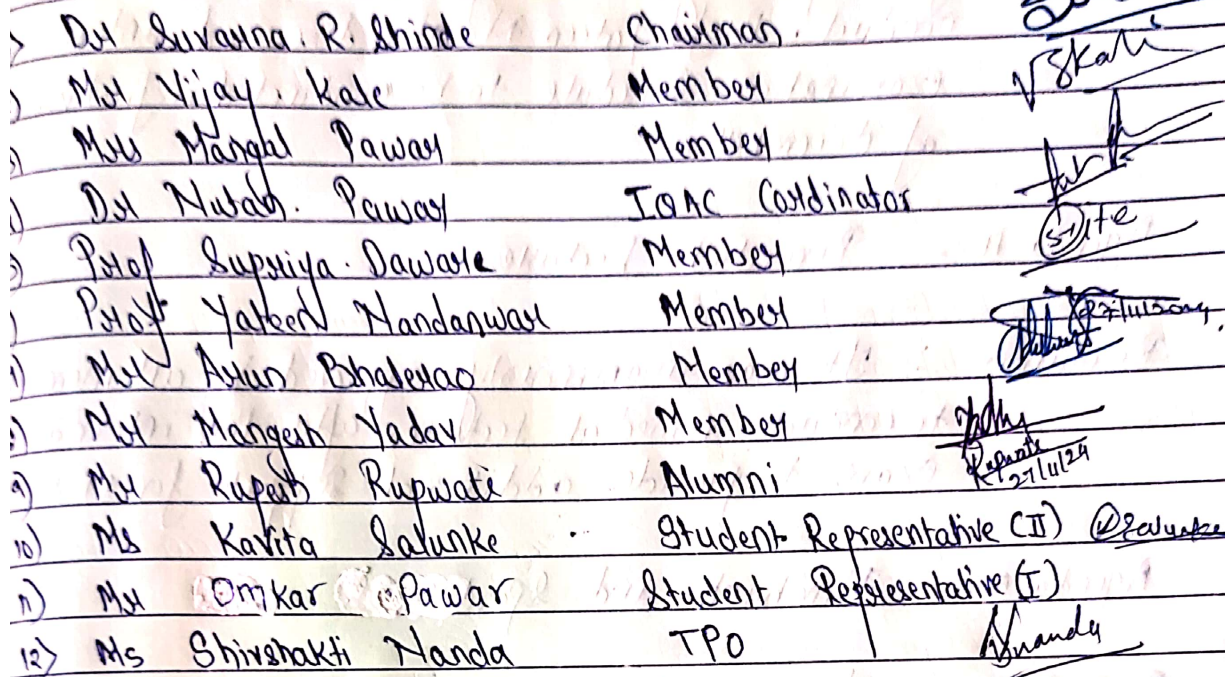 > Dr Suvarna. R. Shinde Chairman.
) Mr Vijay. Kale Member VSKale
) Mrs Mangal Pawar Member
) Dr Nutan. Pawar IQAC Cordinator
) Prof Supriya. Daware Member
) Prof Yateen Nandanwar Member
) Mr Arun Bhalerao Member
) Mr Mangesh Yadav Member
9) Mr Rupesh Rupwate Alumni Rupwate 27/11/24
10) Ms Kavita Salunke Student Representative (II) Salunke
11) Mr Omkar Pawar Student Representative (I)
12) Ms Shivshakti Nanda TPO Nanda